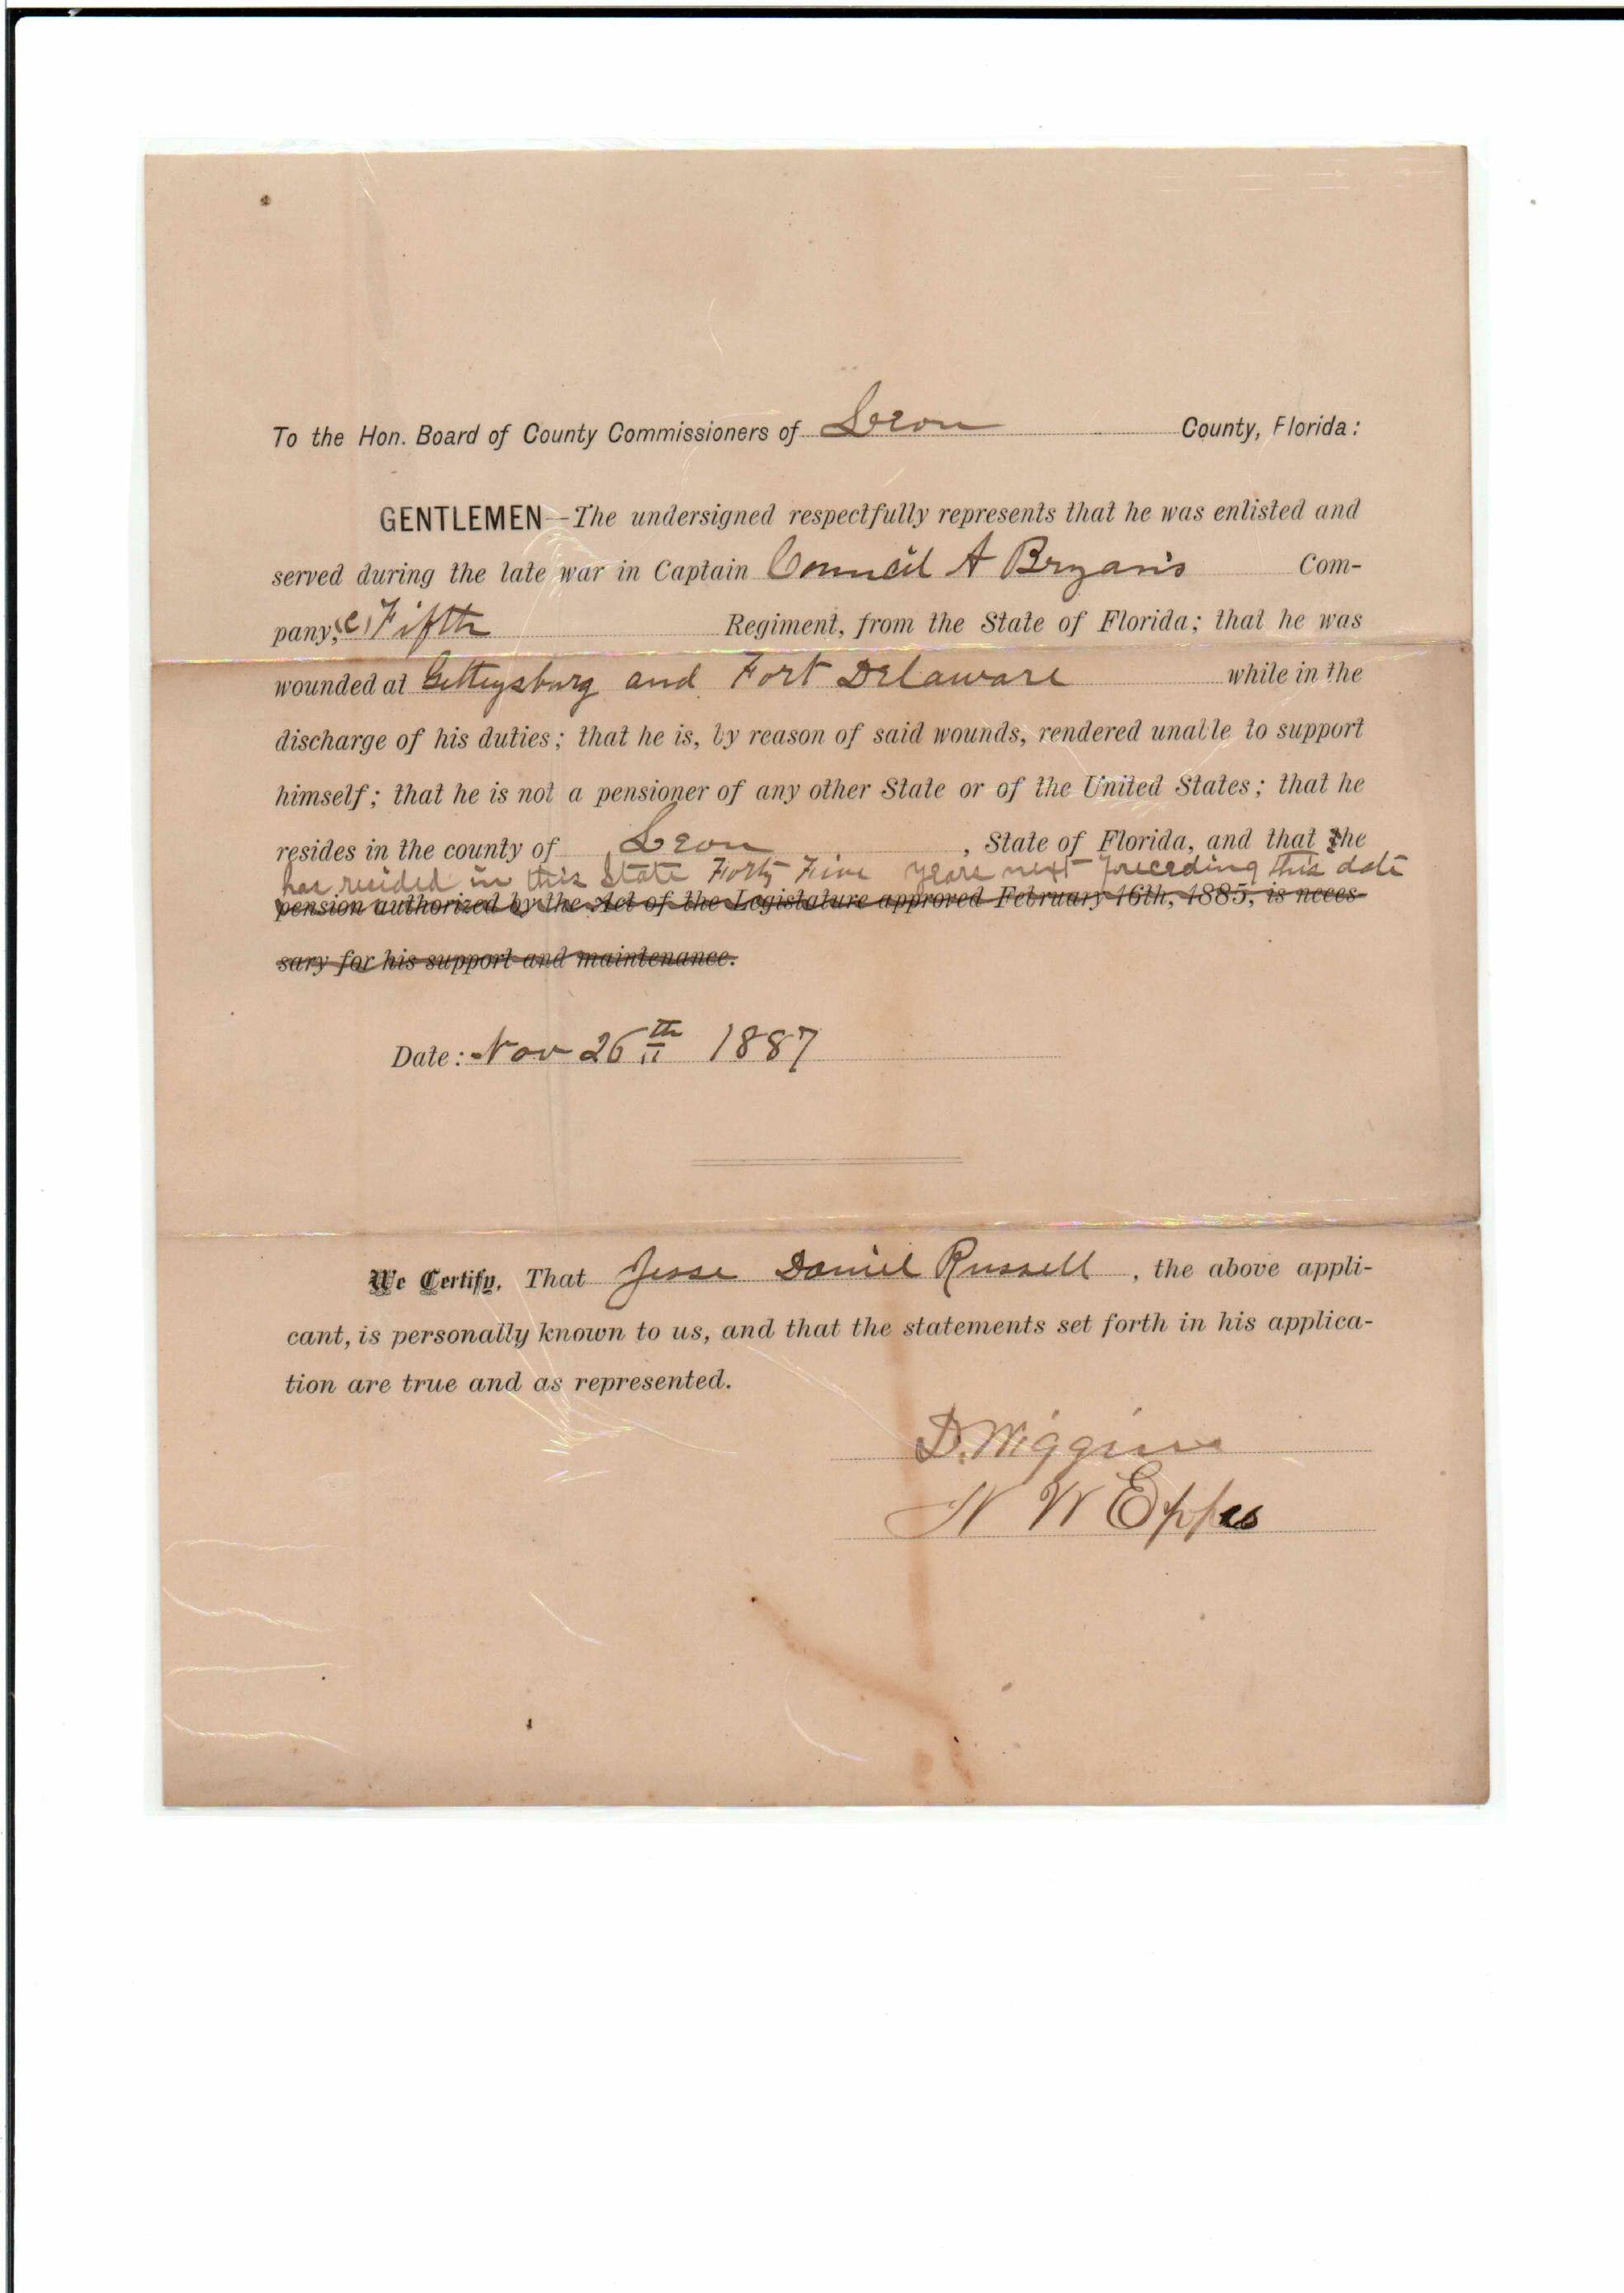 To the Hon. Board of County Commissioners of Leon County, Florida:
GENTLEMEN—The undersigned respectfully represents that he was enlisted and
served during the late war in Captain Council A Bryan's Com-
pany, (C) Fifth Regiment, from the State of Florida; that he was
wounded at Gettysburg and Fort Delaware while in the
discharge of his duties; that he is, by reason of said wounds, rendered unable to support
himself; that he is not a pensioner of any other State or of the United States; that he
resides in the county of Leon, State of Florida, and that the
has resided in this State Forty Five years next preceding this date
pension authorized by the Act of the Legislature approved February 16th, 1885, is neces-
sary for his support and maintenance.
Date: Nov 26th 1887
We Certify, That Jesse Daniel Russell, the above appli-
cant, is personally known to us, and that the statements set forth in his applica-
tion are true and as represented.
D. Wiggins
N W Eppes